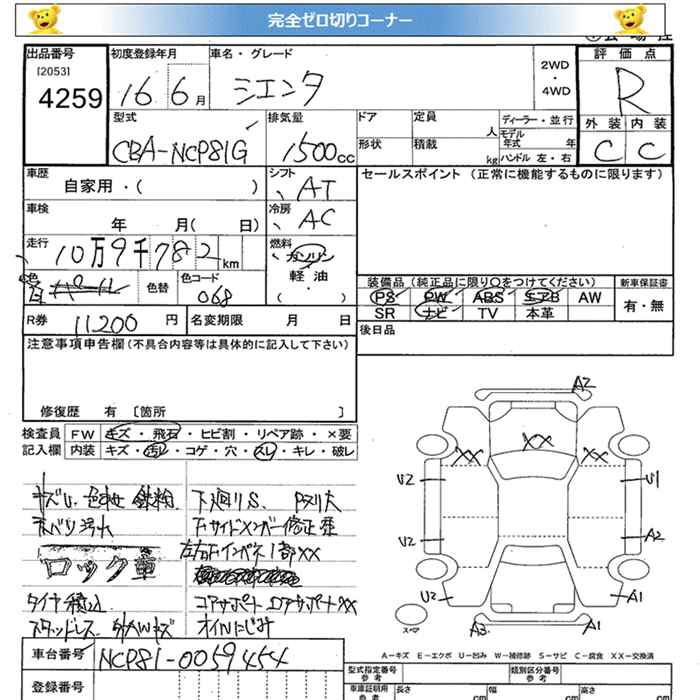 完全ゼロ切りコーナー
出品番号 初度登録年月 車名・グレード 2WD・4WD 評価点
[2053]
4259 16 6月 シエンタ R
型式 排気量 ドア 定員 人 ディーラー・並行 外装 内装
CBA-NCP81G 1500cc 形状 積載 kg モデル年式 年 ハンドル 左・右 C C
車歴 シフト セールスポイント (正常に機能するものに限ります)
自家用・( ) AT
車検 年 月( 日) 冷房 AC
走行 10万9千782km 燃料 ガソリン
軽・油
( )
色 色替 色コード 068
装備品 (純正品に限り○をつけてください) 新車保証書
PS PW ABS エアB AW 有・無
SR ナビ TV 本革
R券 11200円 名変期限 月 日 後日品
注意事項申告欄 (不具合内容等は具体的に記入して下さい)
修復歴 有 [箇所 ]
検査員 FW キズ・飛石・ヒビ割・リペア跡・×要
記入欄 内装 キズ・汚レ・コゲ・穴・スレ・キレ・破レ
キズU. 色あせ 鉄粉
下廻りS.
下サイドメンバー修正歴
左右Fインペネ1部XX
ロック車
タイヤ積込
コアサポート XX
スタッドレス
オイルにじみ
A2
XX
XX XX
U2 U1
U2 A2
U2 A1
A3 A1
スペア
A－キズ E－エクボ U－凹み W－補修跡 S－サビ C－腐食 XX－交換済
車台番号 NCP81-0059454
型式指定番号 参考 類別区分番号 参考
登録番号 車庫証明用 参考 長さ cm 幅 cm 高さ cm